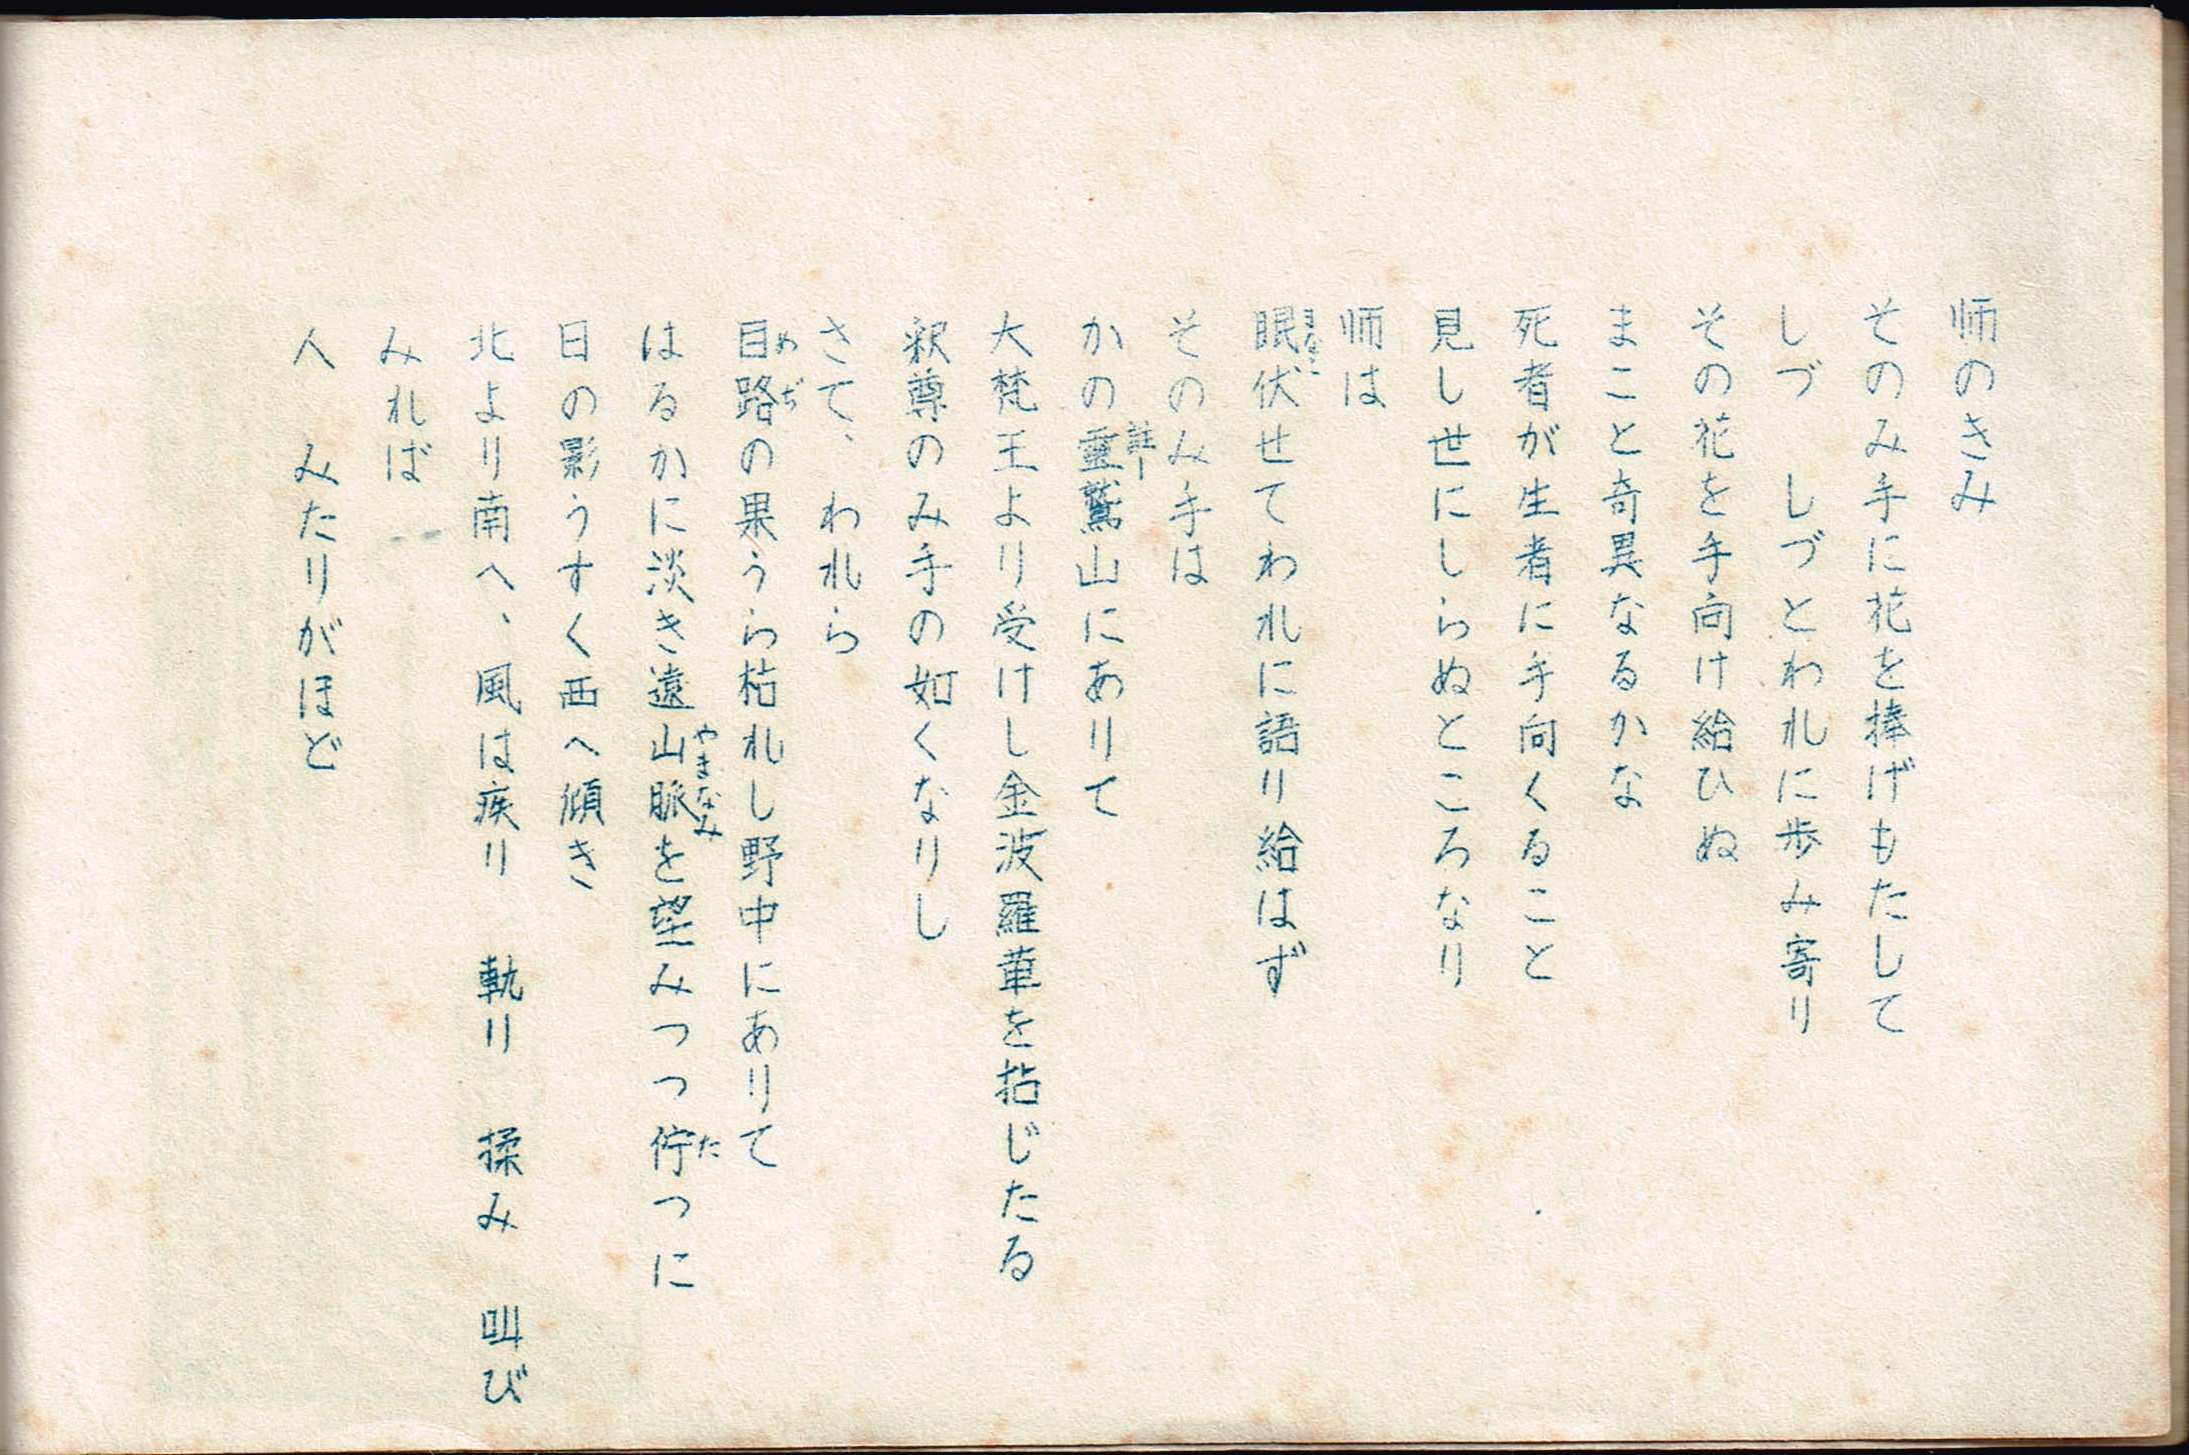 師のきみ
そのみ手に花を捧げもたして
しづ しづとわれに歩み寄り
その花を手向け給ひぬ
まこと奇異なるかな
死者が生者に手向くること
見し世にしらぬところなり
師は
眠伏せてわれに語り給はず
まなこ
そのみ手は
かの霊鷲山にありて
註1
大梵王より受けし金波羅華を拈じたる
釈尊のみ手の如くなりし
さて、われら
目路の果うら枯れし野中にありて
めぢ
はるかに淡き遠山脈を望みつつ佇つに
やまなみ
た
日の影うすく西へ傾き
北より南へ、風は疾り 軋り 揉み 叫び
みれば
人 みたりがほど